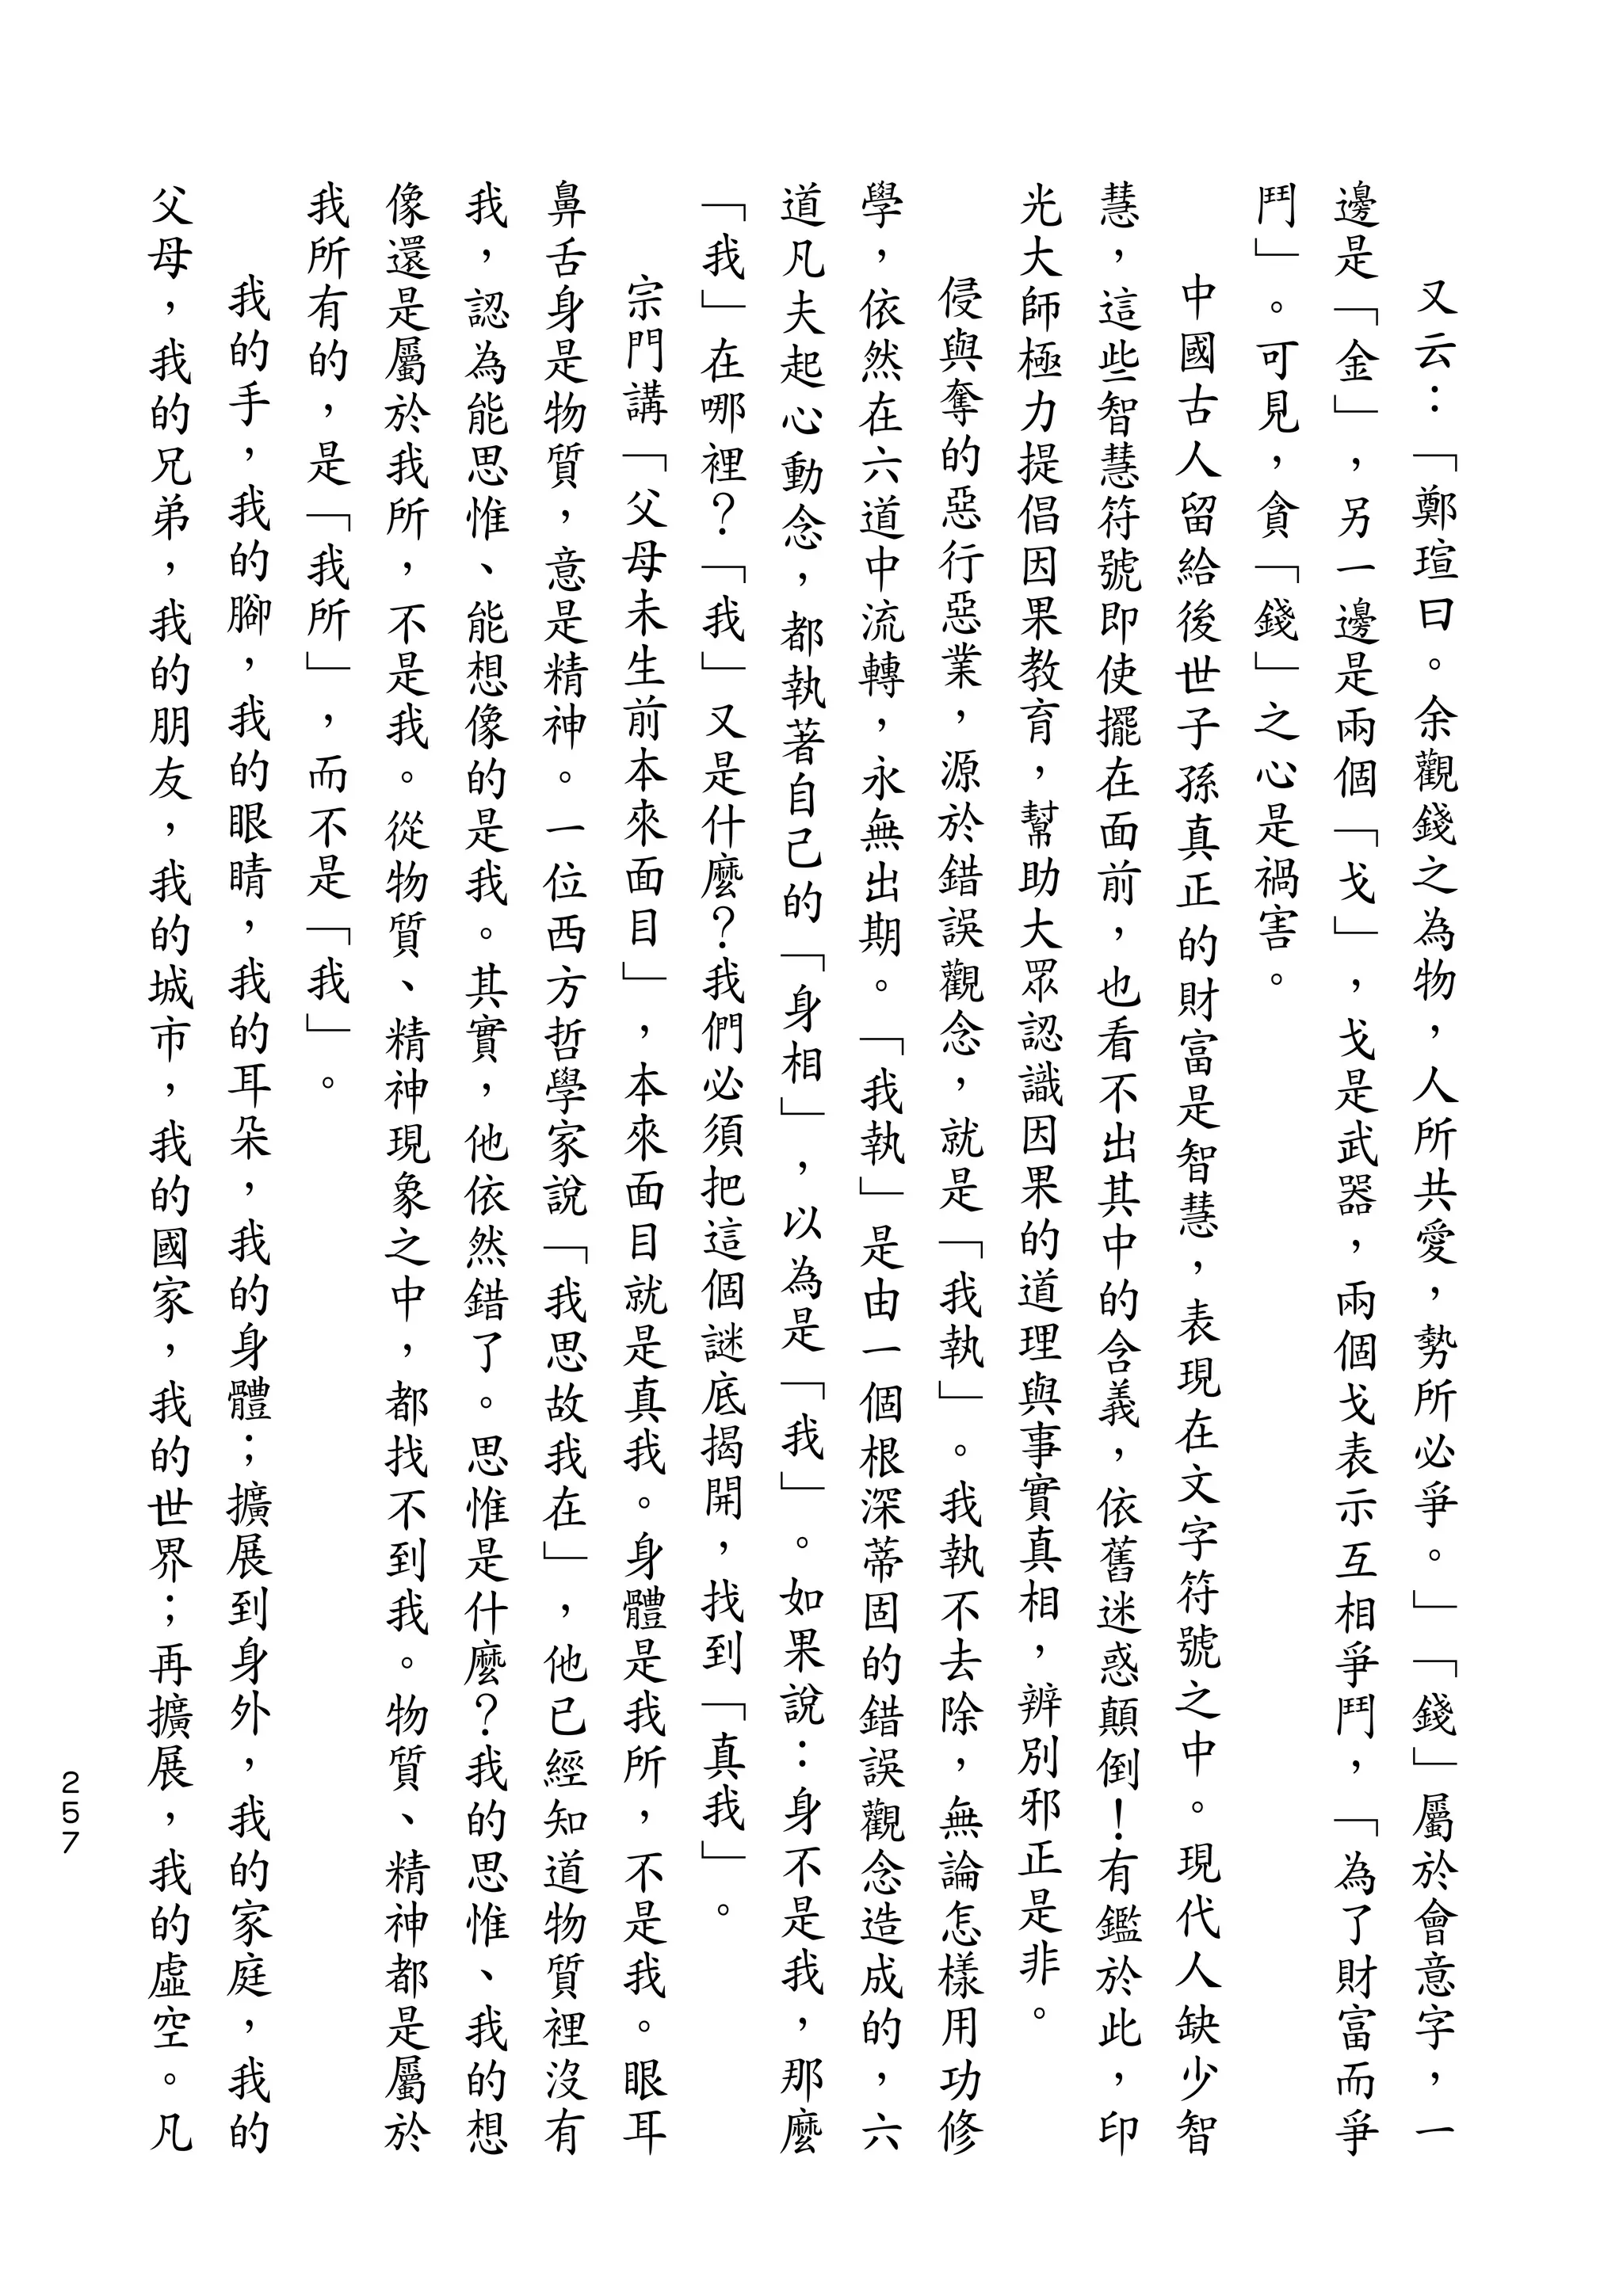 又云：「鄭瑄曰。余觀錢之為物，人所共愛，勢所必爭。」「錢」屬於會意字，一
邊是「金」，另一邊是兩個「戈」，戈是武器，兩個戈表示互相爭鬥，「為了財富而爭
鬥」。可見，貪「錢」之心是禍害。
中國古人留給後世子孫真正的財富是智慧，表現在文字符號之中。現代人缺少智
慧，這些智慧符號即使擺在面前，也看不出其中的含義，依舊迷惑顛倒！有鑑於此，印
光大師極力提倡因果教育，幫助大眾認識因果的道理與事實真相，辨別邪正是非。
侵與奪的惡行惡業，源於錯誤觀念，就是「我執」。我執不去除，無論怎樣用功修
學，依然在六道中流轉，永無出期。「我執」是由一個根深蒂固的錯誤觀念造成的，六
道凡夫起心動念，都執著自己的「身相」，以為是「我」。如果說：身不是我，那麼
「我」在哪裡？「我」又是什麼？我們必須把這個謎底揭開，找到「真我」。
宗門講「父母未生前本來面目」，本來面目就是真我。身體是我所，不是我。眼耳
鼻舌身是物質，意是精神。一位西方哲學家說「我思故我在」，他已經知道物質裡沒有
我，認為能思惟、能想像的是我。其實，他依然錯了。思惟是什麼？我的思惟、我的想
像還是屬於我所，不是我。從物質、精神現象之中，都找不到我。物質、精神都是屬於
我所有的，是「我所」，而不是「我」。
我的手，我的腳，我的眼睛，我的耳朵，我的身體；擴展到身外，我的家庭，我的
父母，我的兄弟，我的朋友，我的城市，我的國家，我的世界；再擴展，我的虛空。凡
257